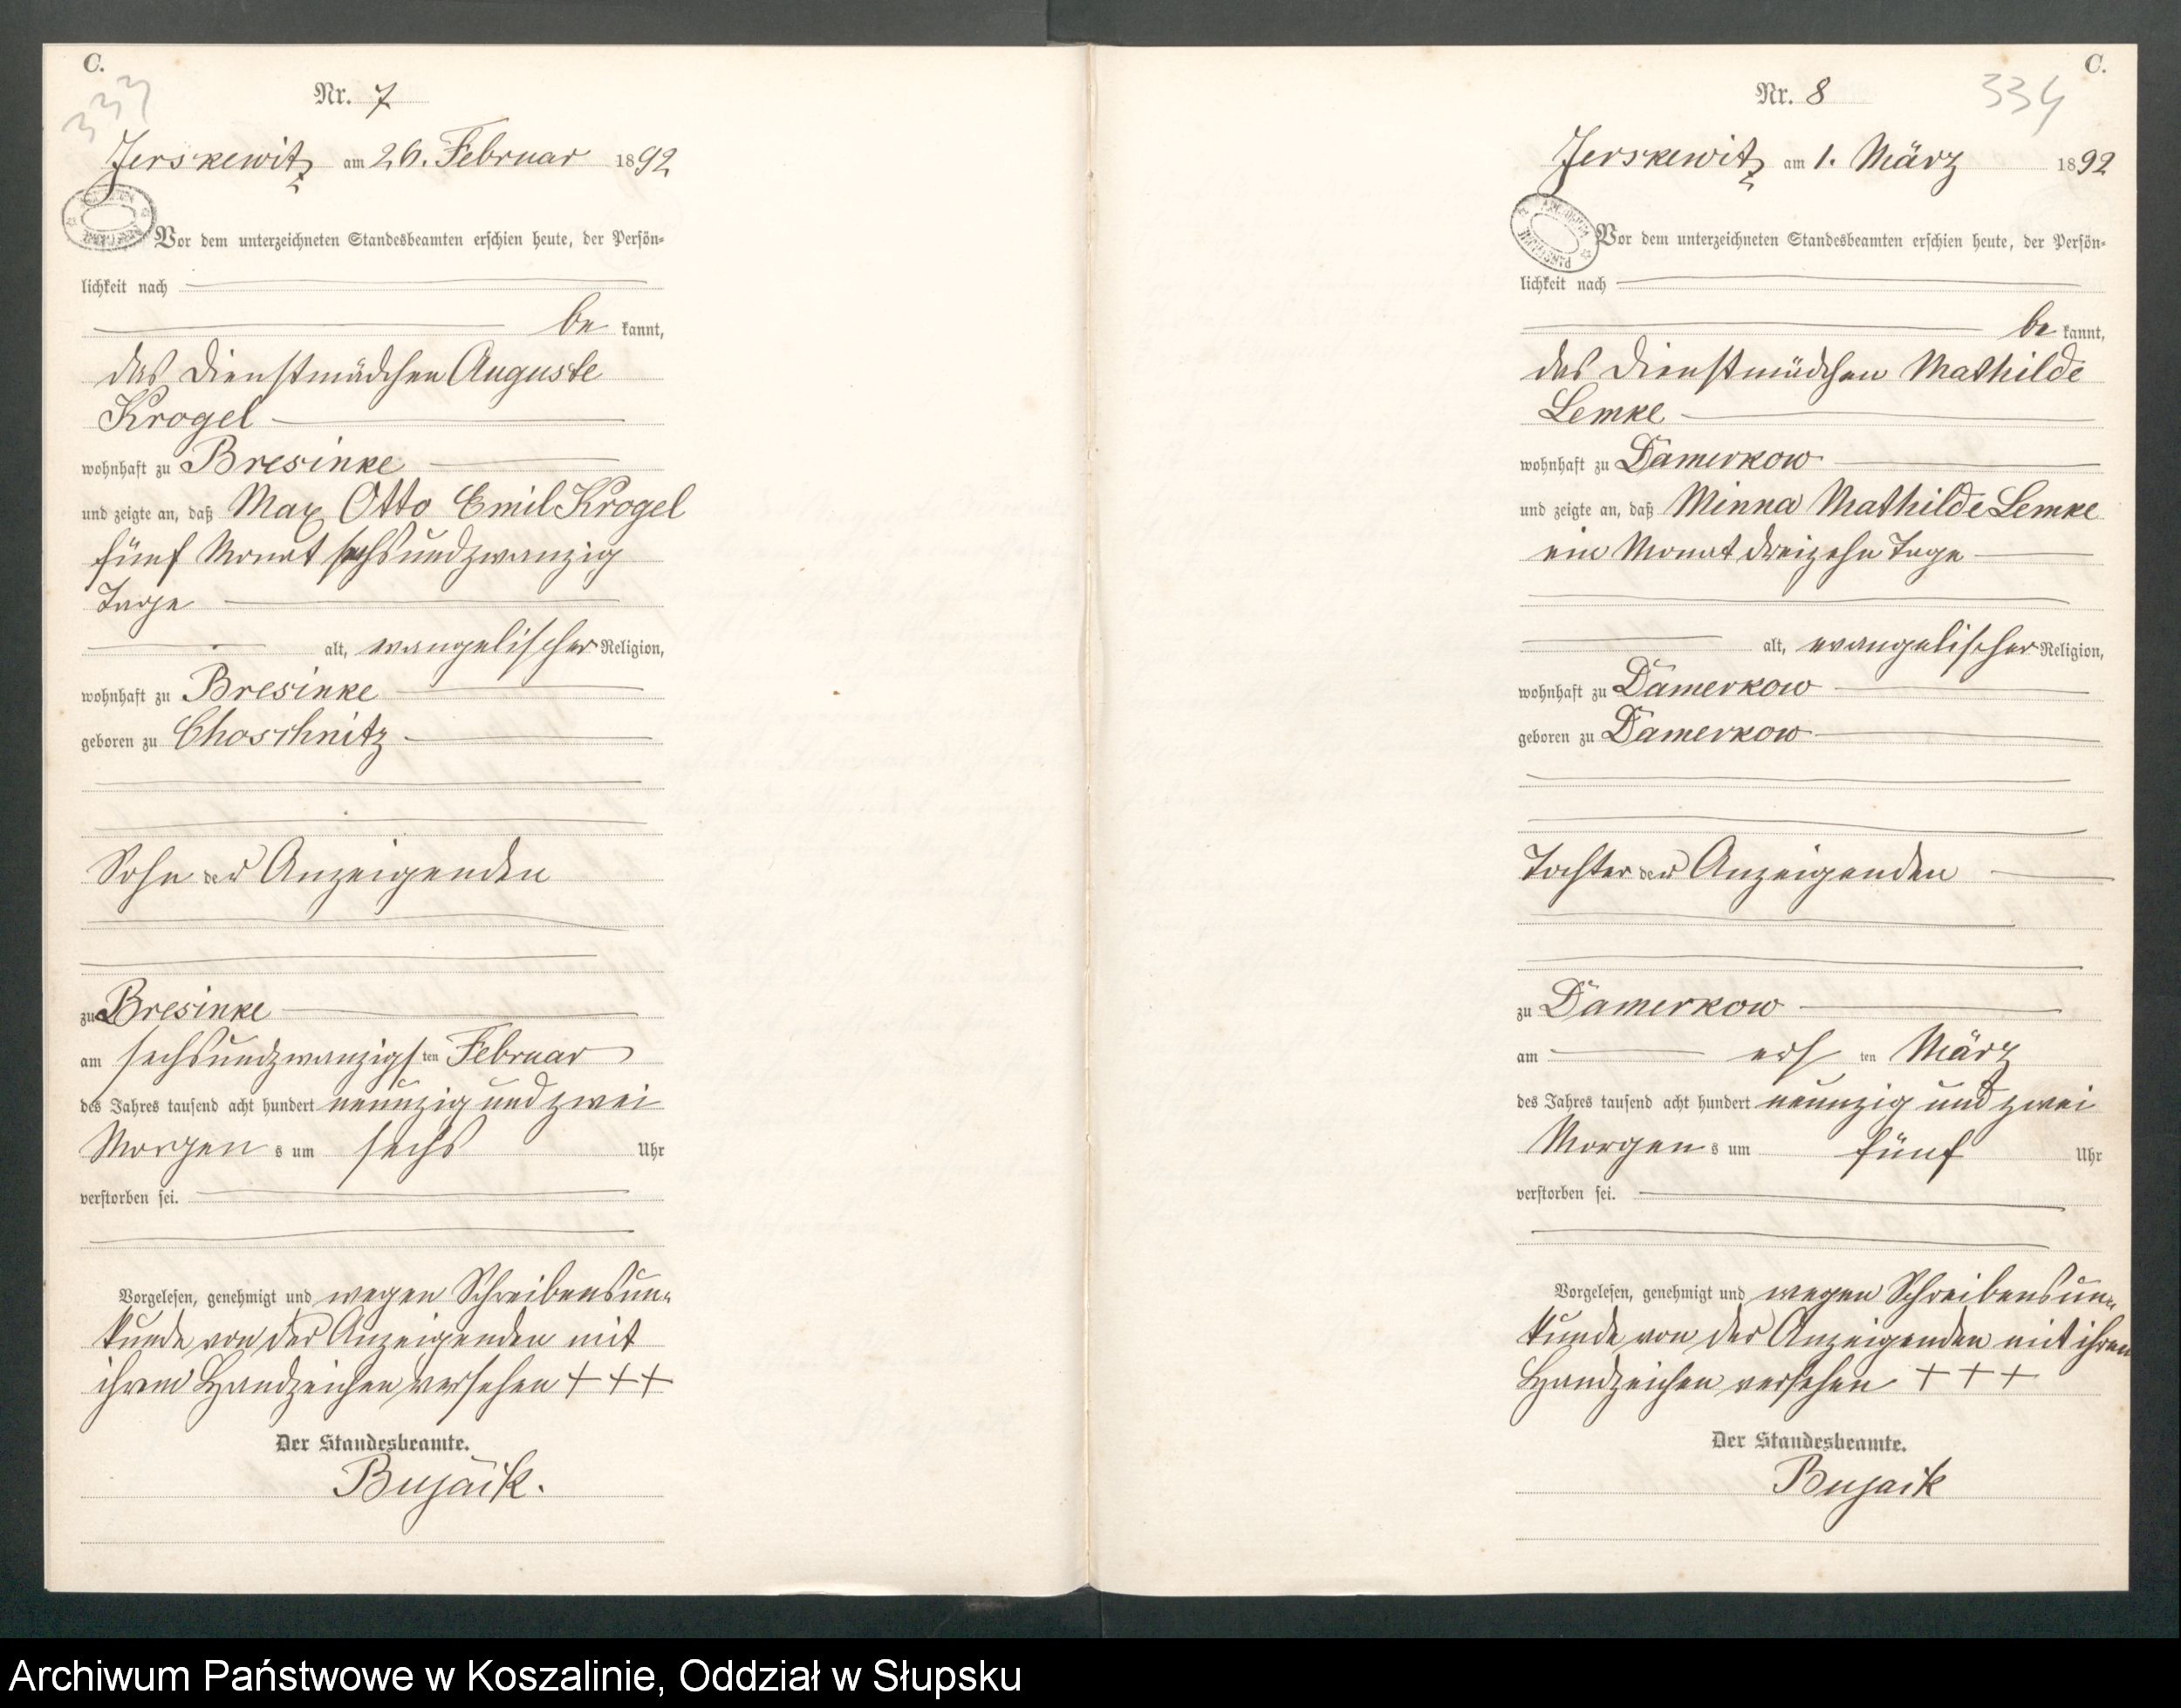 C.
333
Nr. 7
Jerskewitz am 26. Februar 1892
Vor dem unterzeichneten Standesbeamten erschien heute, der Persön-
lichkeit nach
be kannt,
das Dienstmädchen Auguste
Krogel
wohnhaft zu Bresinke
und zeigte an, daß Max Otto Emil Krogel
fünf Monat sechsundzwanzig
Tage
alt, evangelischer Religion,
wohnhaft zu Bresinke
geboren zu Choschnitz
Sohn der Anzeigenden
zu Bresinke
am sechsundzwanzigs ten Februar
des Jahres tausend acht hundert neunzig und zwei
Morgen s um sechs Uhr
verstorben sei.
Vorgelesen, genehmigt und wegen Schreibensun-
kunde von der Anzeigenden mit
ihrem Handzeichen versehen + + +
Der Standesbeamte.
Bujäik.
C.
334
Nr. 8
Jerskewitz am 1. März 1892
Vor dem unterzeichneten Standesbeamten erschien heute, der Persön-
lichkeit nach
be kannt,
das Dienstmädchen Mathilde
Lemke
wohnhaft zu Damerkow
und zeigte an, daß Minna Mathilde Lemke
ein Monat dreizehn Tage
alt, evangelischer Religion,
wohnhaft zu Damerkow
geboren zu Damerkow
Tochter der Anzeigenden
zu Damerkow
am ers ten März
des Jahres tausend acht hundert neunzig und zwei
Morgen s um fünf Uhr
verstorben sei.
Vorgelesen, genehmigt und wegen Schreibensun-
kunde von der Anzeigenden mit ihrem
Handzeichen versehen + + +
Der Standesbeamte.
Bujaik
Archiwum Państwowe w Koszalinie, Oddział w Słupsku